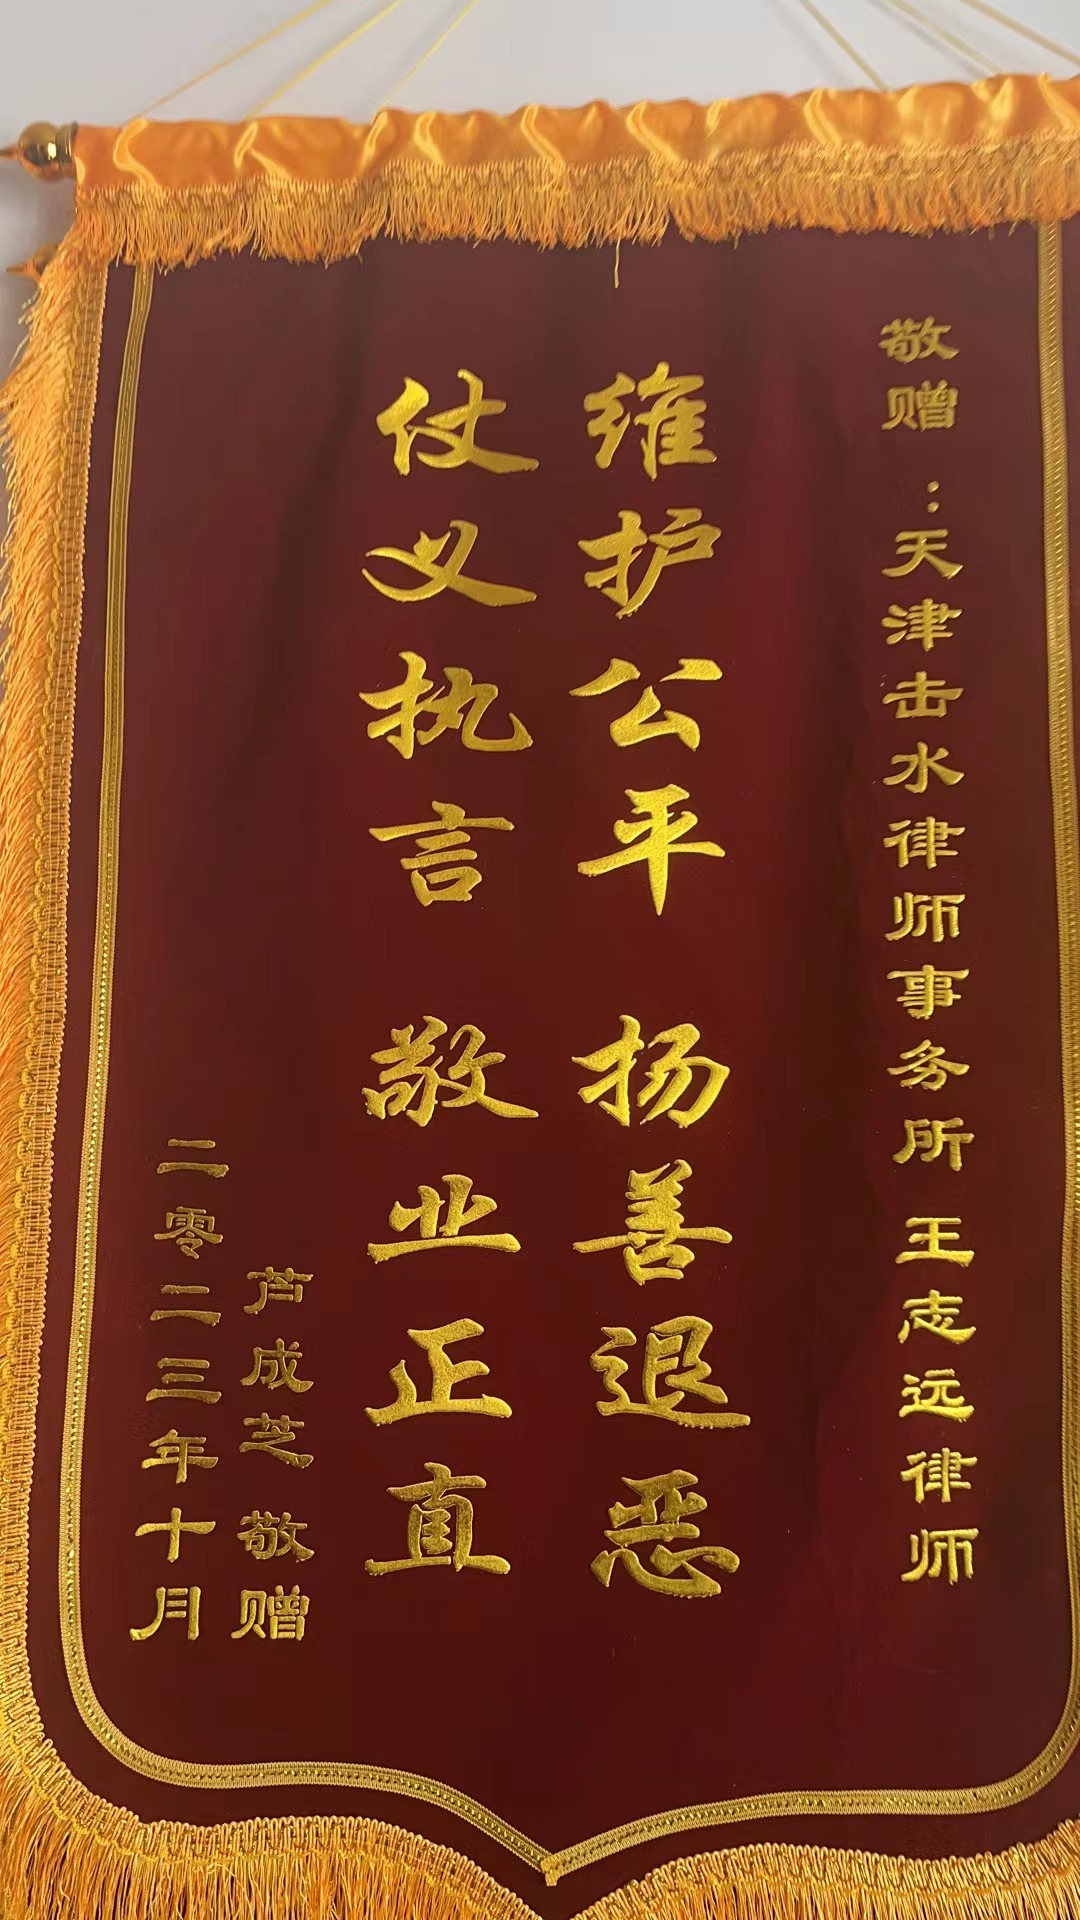 敬赠：天津击水律师事务所 王志远律师
维护公平 扬善退恶
仗义执言 敬业正直
芦成芝 敬赠
二零二三年十月